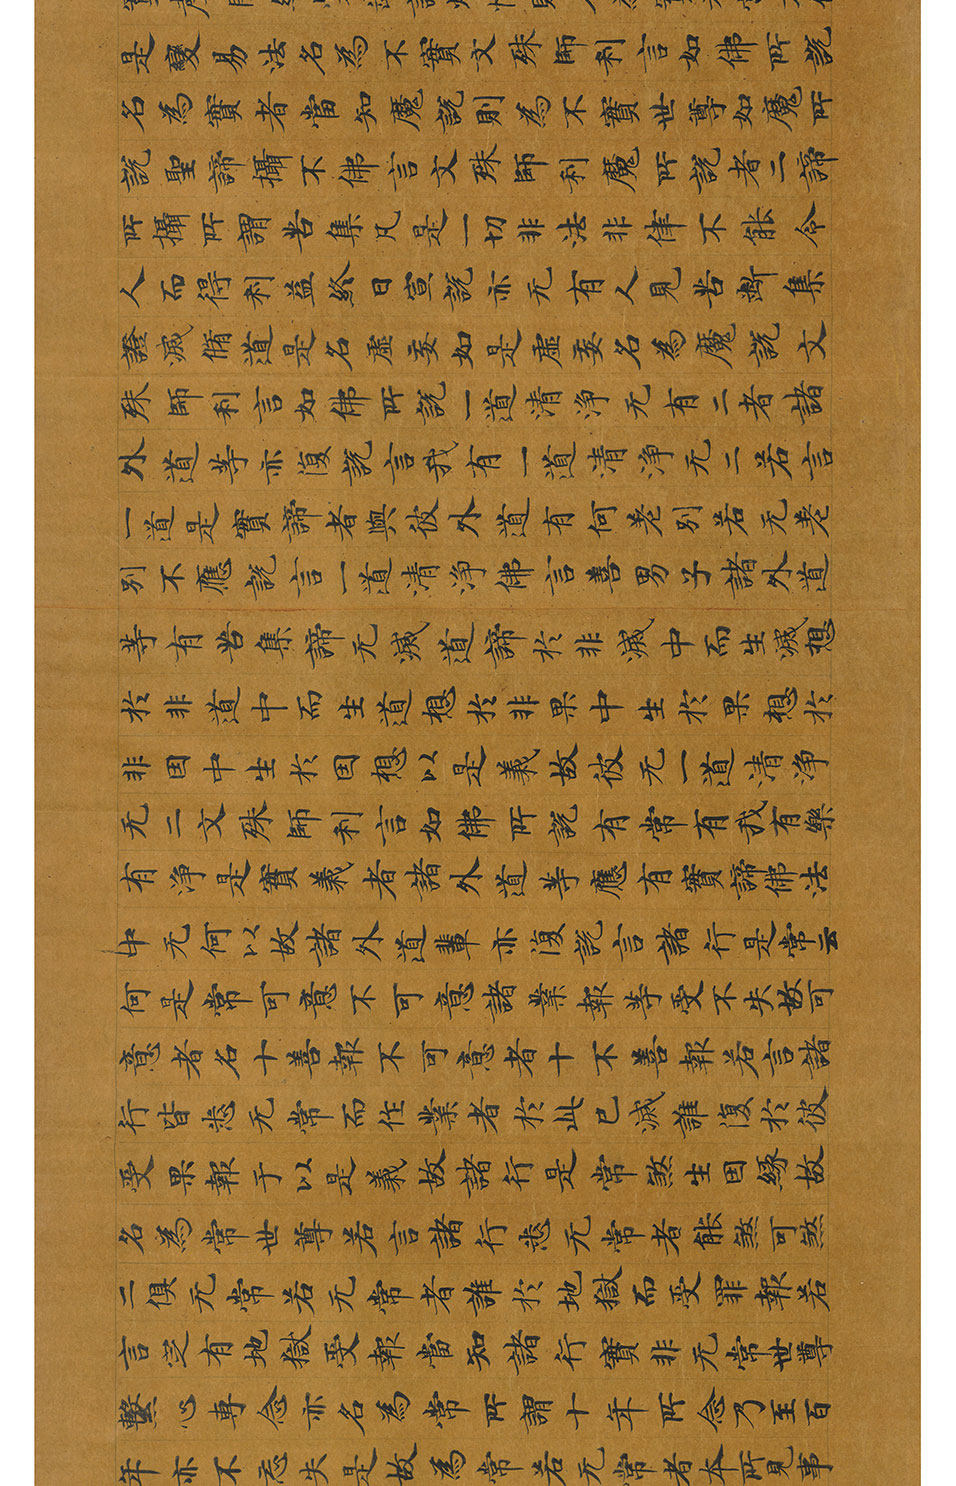 是變易法名為不實文殊師利言如佛所說
名為實者當知魔說則為不實世尊如魔所
說聖諦攝不佛言文殊師利魔所說者二諦
所攝所謂苦集凡是一切非法非律不能令
人而得利益終日宣說亦无有人見苦斷集
證滅脩道是名虛妄如是虛妄名為魔說文
殊師利言如佛所說一道清淨无有二者諸
外道等亦復說言我有一道清淨无二若言
一道是實諦者與彼外道有何差別若无差
別不應說言一道清淨佛言善男子諸外道
等有苦集諦无滅道諦於非滅中而生滅想
於非道中而生道想於非果中生於果想於
非因中生於因想以是義故彼无一道清淨
无二文殊師利言如佛所說有常有我有樂
有淨是實義者諸外道等應有實諦佛法
中无何以故諸外道輩亦復說言諸行是常云
何是常可意不可意諸業報等受不失故可
意者名十善報不可意者十不善報若言諸
行皆悉无常而作業者於此已滅誰復於彼
受果報乎以是義故諸行是常煞生因緣故
名為常世尊若言諸行悉无常者能煞可煞
二俱无常若无常者誰於地獄而受罪報若
言定有地獄受報當知諸行實非无常世尊
繫心專念亦名為常所謂十年所念乃至百
年亦不忘失是故為常若无常者本所見事